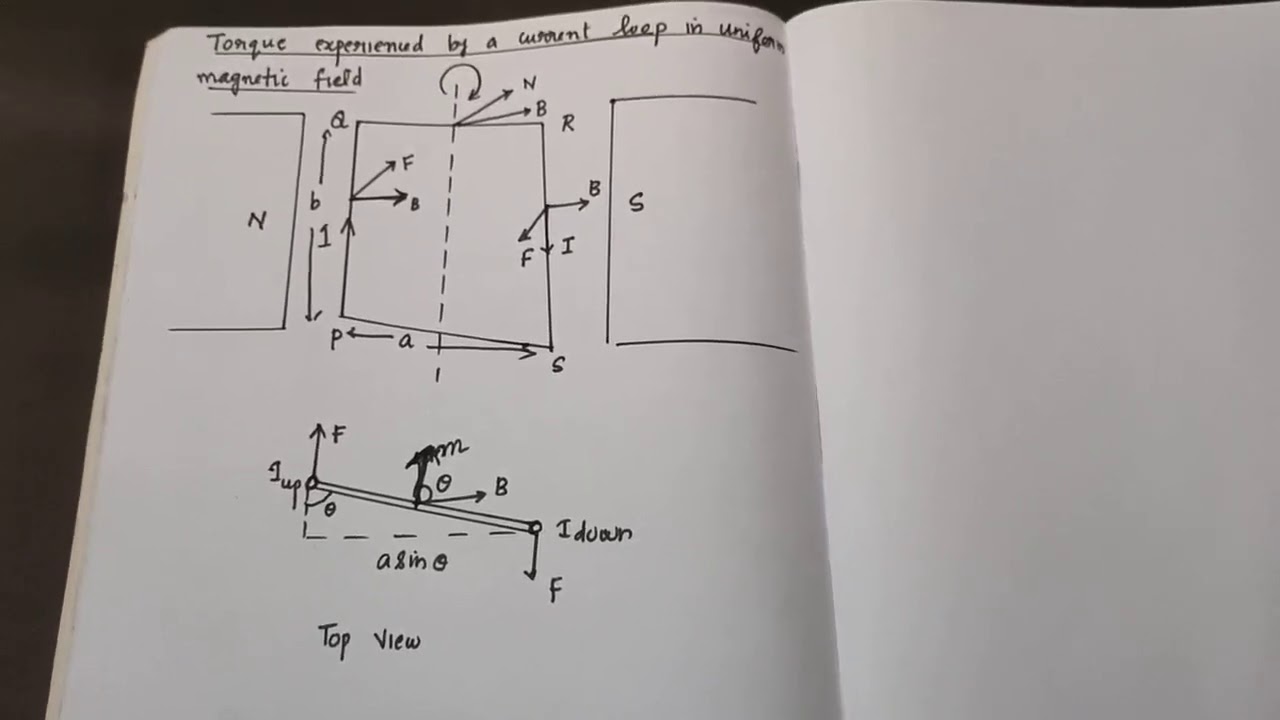 Torque experienced by a current loop in uniform
magnetic field
N
B
Q
R
F
B
B
b
N
S
I
F
I
P
a
S
F
m
I up
θ
B
θ
I down
a sin θ
F
Top view